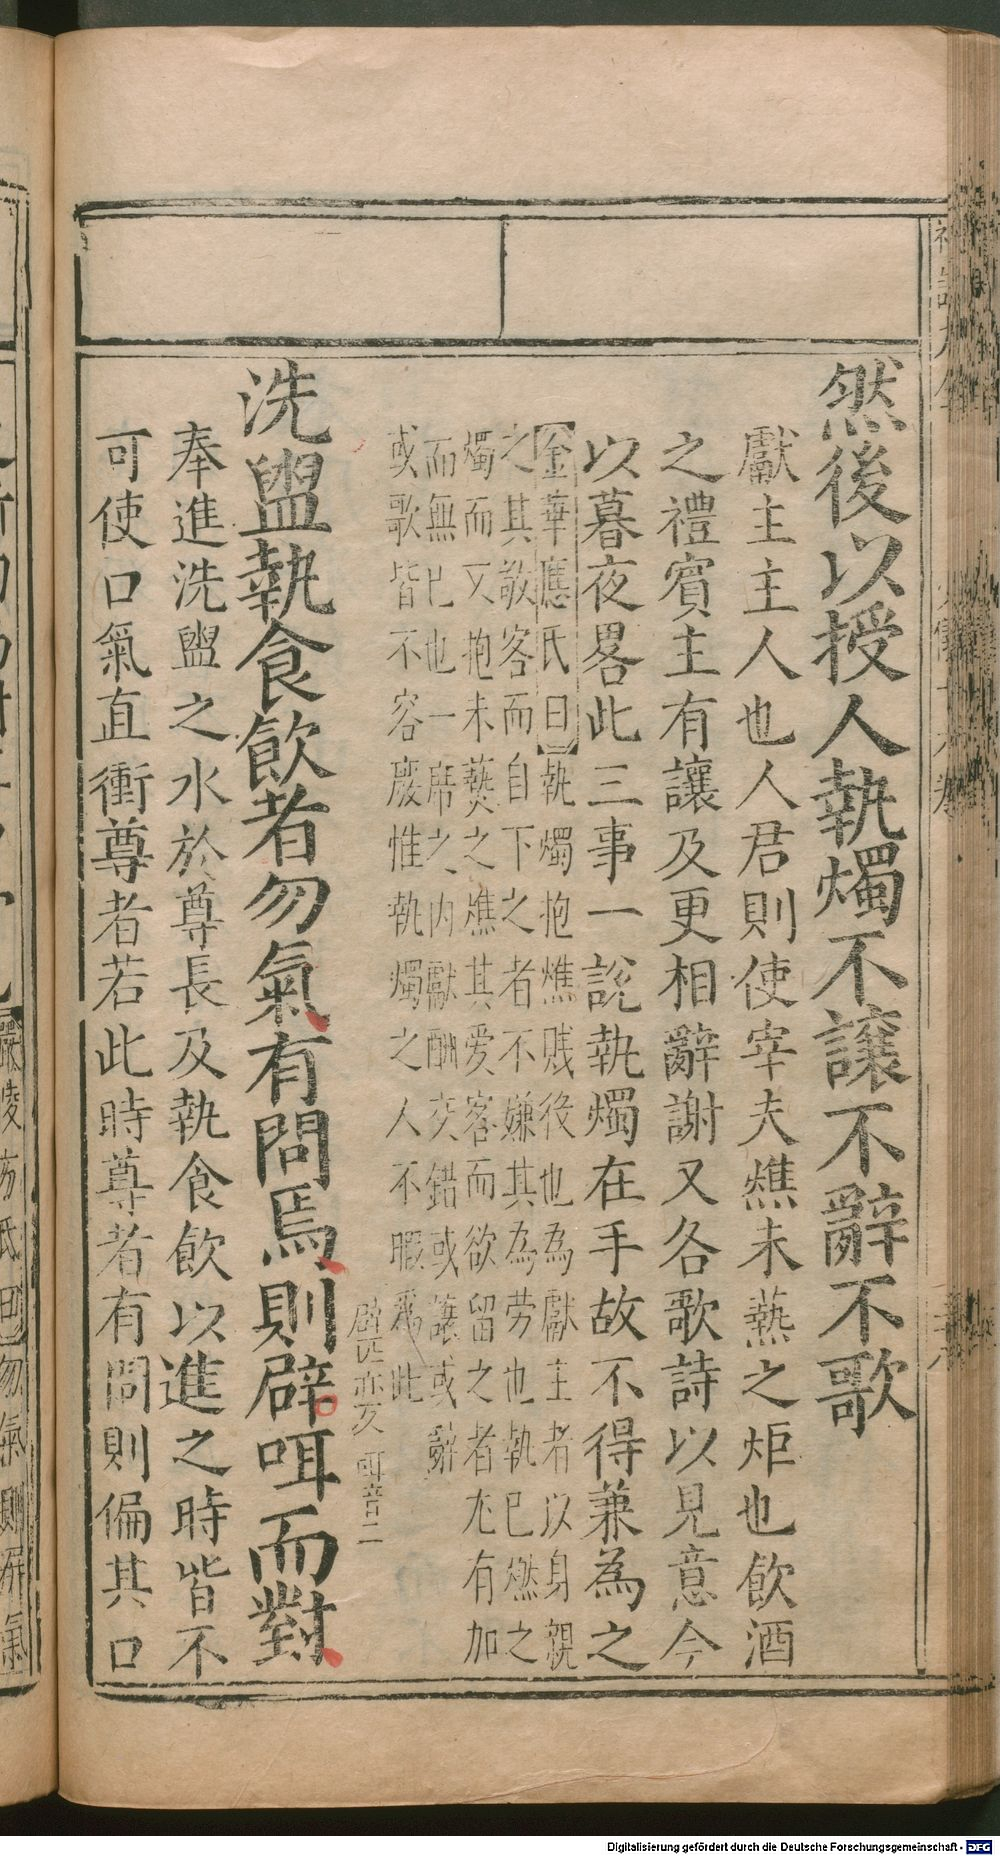 然後以授人執燭不讓不辭不歌
獻主主人也人君則使宰夫燋未爇之炬也飲酒
之禮賓主有讓及更相辭謝又各歌詩以見意今
以暮夜畧此三事一說執燭在手故不得兼為之
金華應氏曰執燭抱燋賤役也為獻主者以身親
之其敬客而自下之者不嫌其為劳也執已燃之
燭而又抱未爇之燋其爱客而欲留之者尤有加
而無已也一席之内獻酬交錯或讓或辭
或歌皆不容廢惟執燭之人不暇為此
辟匹亦反 咡音二
洗盥執食飲者勿氣有問焉則辟咡而對
奉進洗盥之水於尊長及執食飲以進之時皆不
可使口氣直衝尊者若此時尊者有問則偏其口
嚴陵方氏曰勿氣則屏氣
Digitalisierung gefördert durch die Deutsche Forschungsgemeinschaft - DFG